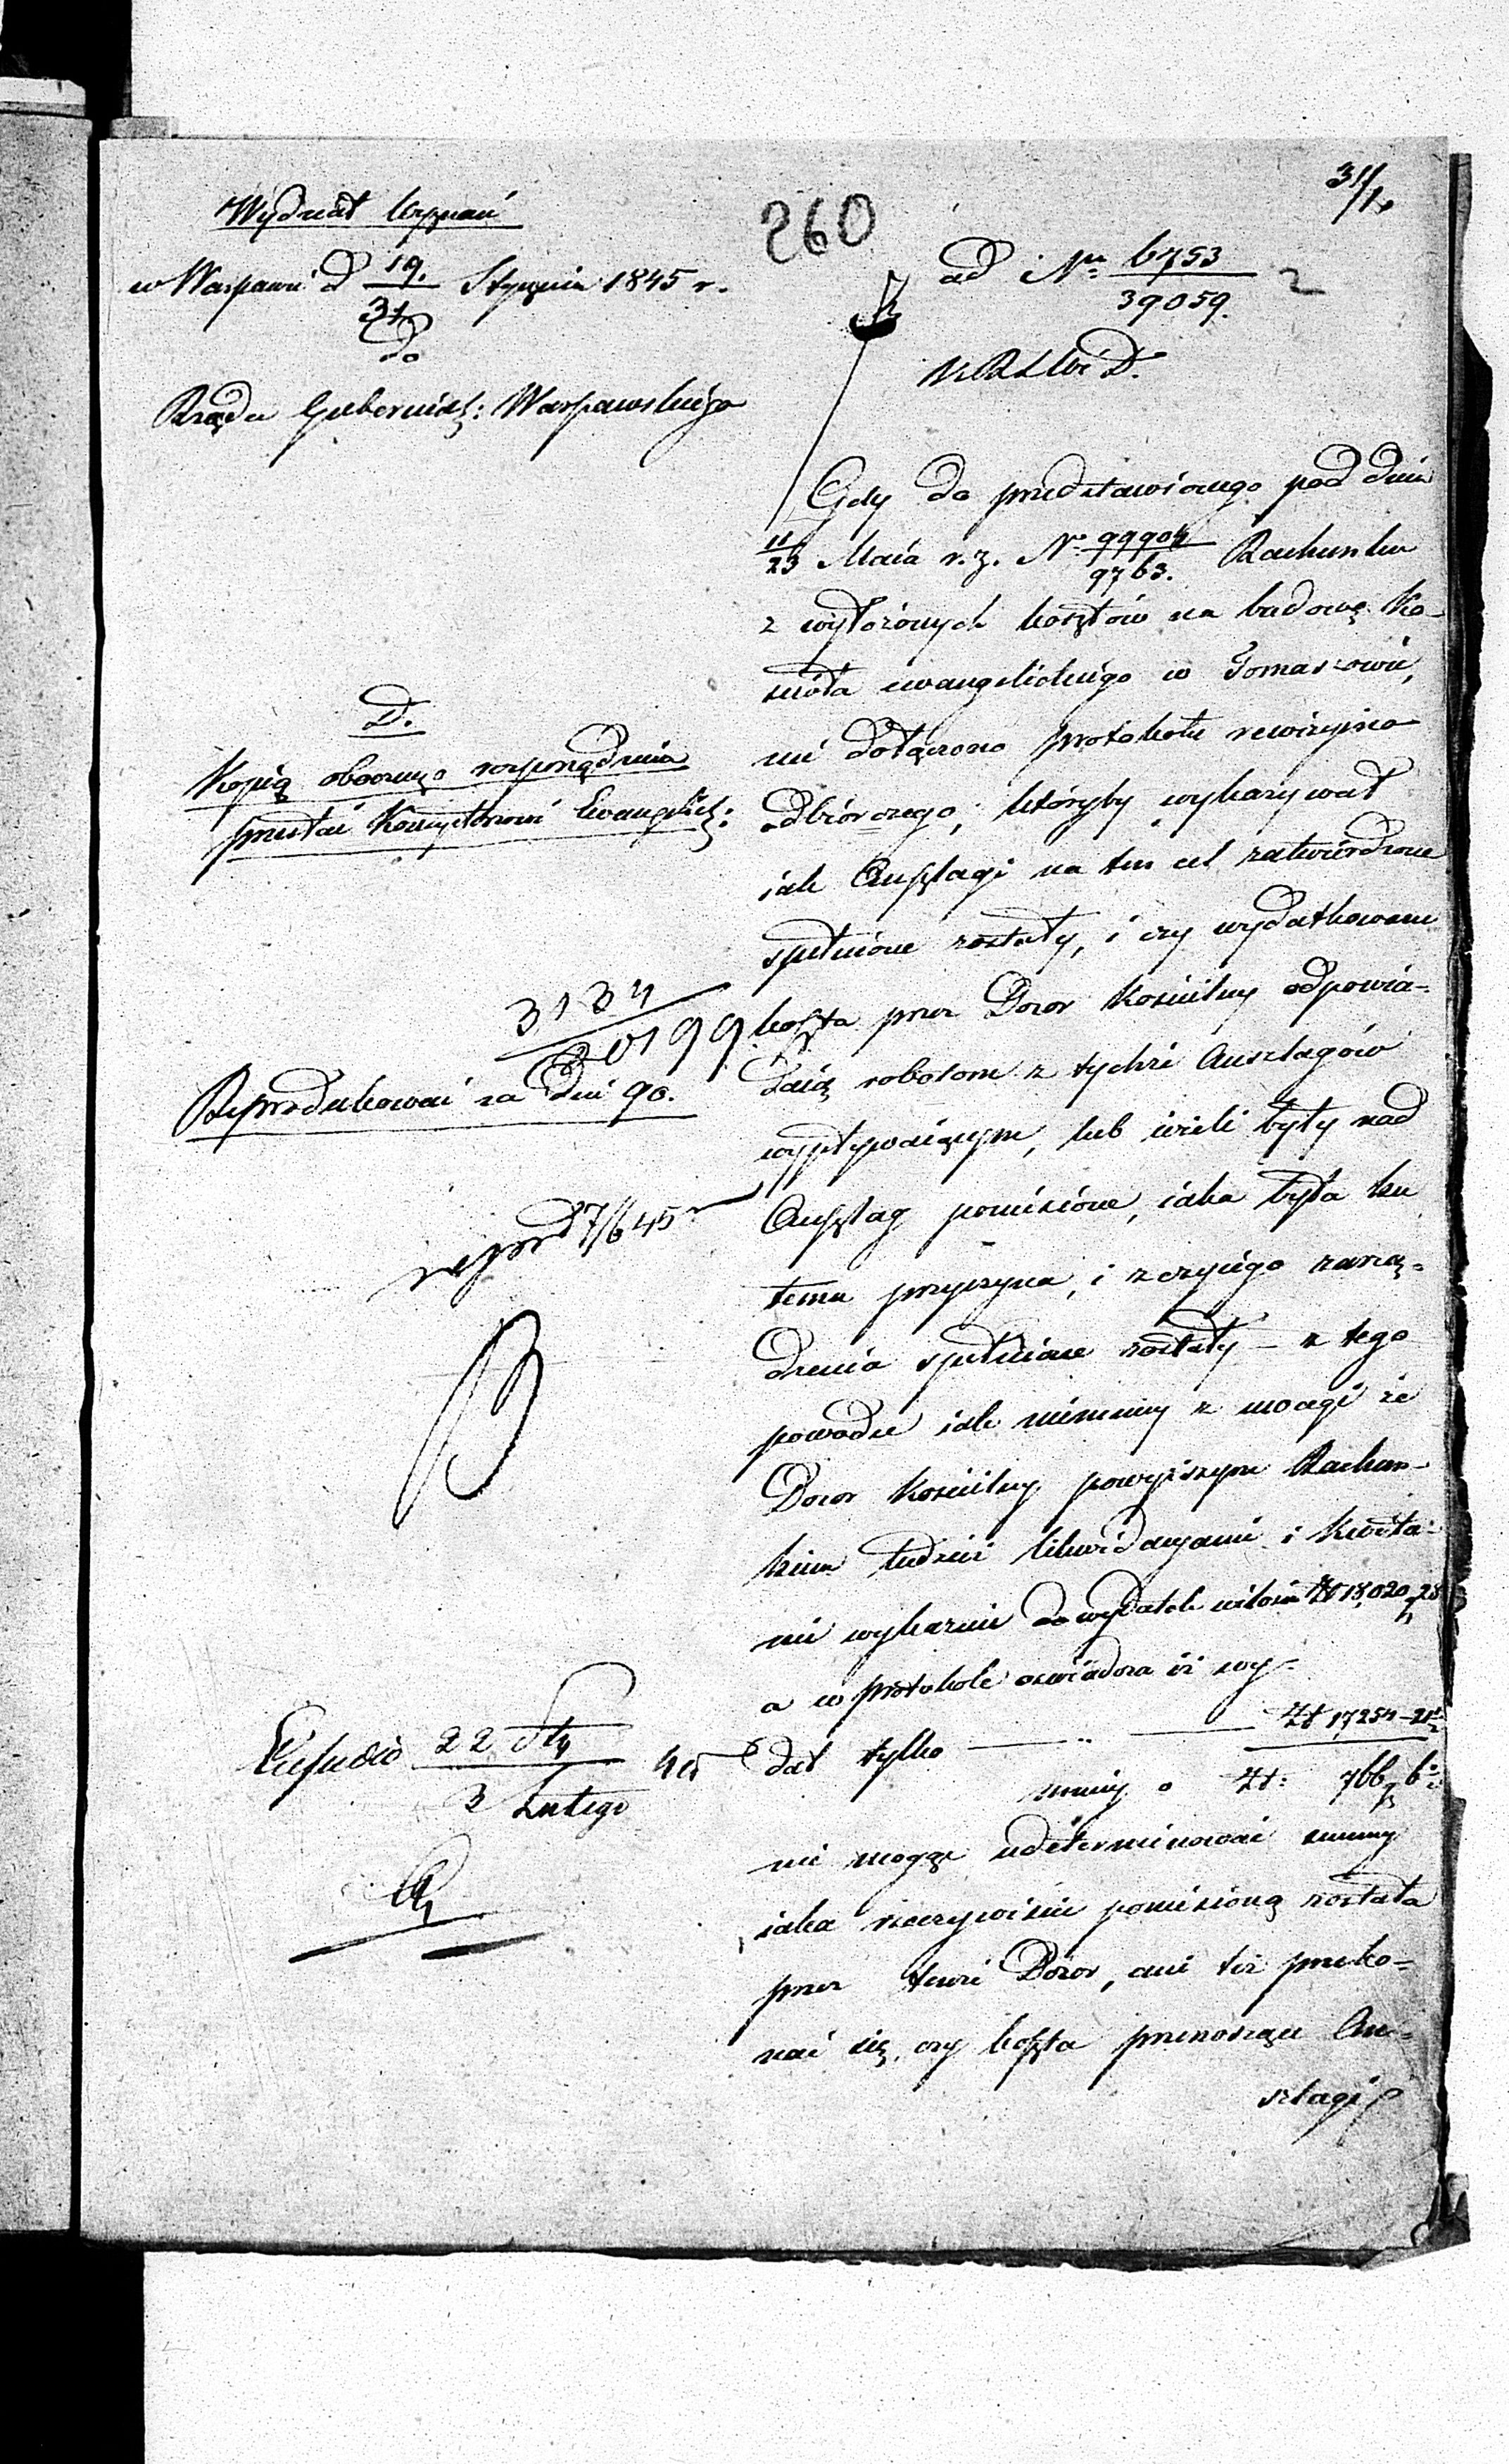 31/1
Wydział Wyznań
260
w Warszawie d 19./31 Stycznia 1845 r.
ad Nr 6753/39059. 2
Do
Rządu Gubernial: Warszawskiego
Gdy do przedstawionego pod dniem
11/23 Maia r. z. N° 99904/9763. Rachunku
z wyłożonych kosztów na budowę Ko-
ścioła ewangelickiego w Tomaszowie,
nie dołączono protokołu rewizyjno
odbiórczego, któryby wykazywał
iak Anszlagi na ten cel zatwierdzone
spełnione zostały, i czy wydatkowane
koszta przez Dozor Kościelny odpowia-
daią robotom z tychże Anszlagów
wypływaiącym, lub ieżeli były nad
Anszlag poniesione, iaka była ku
temu przyczyna, i z czyiego zarzą-
dzenia spełniane zostały – z tego
powodu iak niemniey z uwagi że
Dozor Kościelny powyższym Rachun-
kiem tudzież likwidacyami i kwita-
mi wykazuie wydatek w ilości Zł 18,020 28
a w protokole oświadcza iż wy-
dał tylko Zł 17254 – 21½
mniey o Zł: 766 6½
nie mogąc udeterminować summy
iaka rzeczywiście poniesioną została
przez tenże Dozor, ani też przeko-
nać się, czy koszta przenoszące An-
szlagi
D.
Kopią obocznego rozporządzenia
przesłać Konsystorzowi Ewangelick:
3134/20199
Reprodukować za Dni 90.
repro d 7/6 45
Expedio 22 Sty/3 Lutego 45